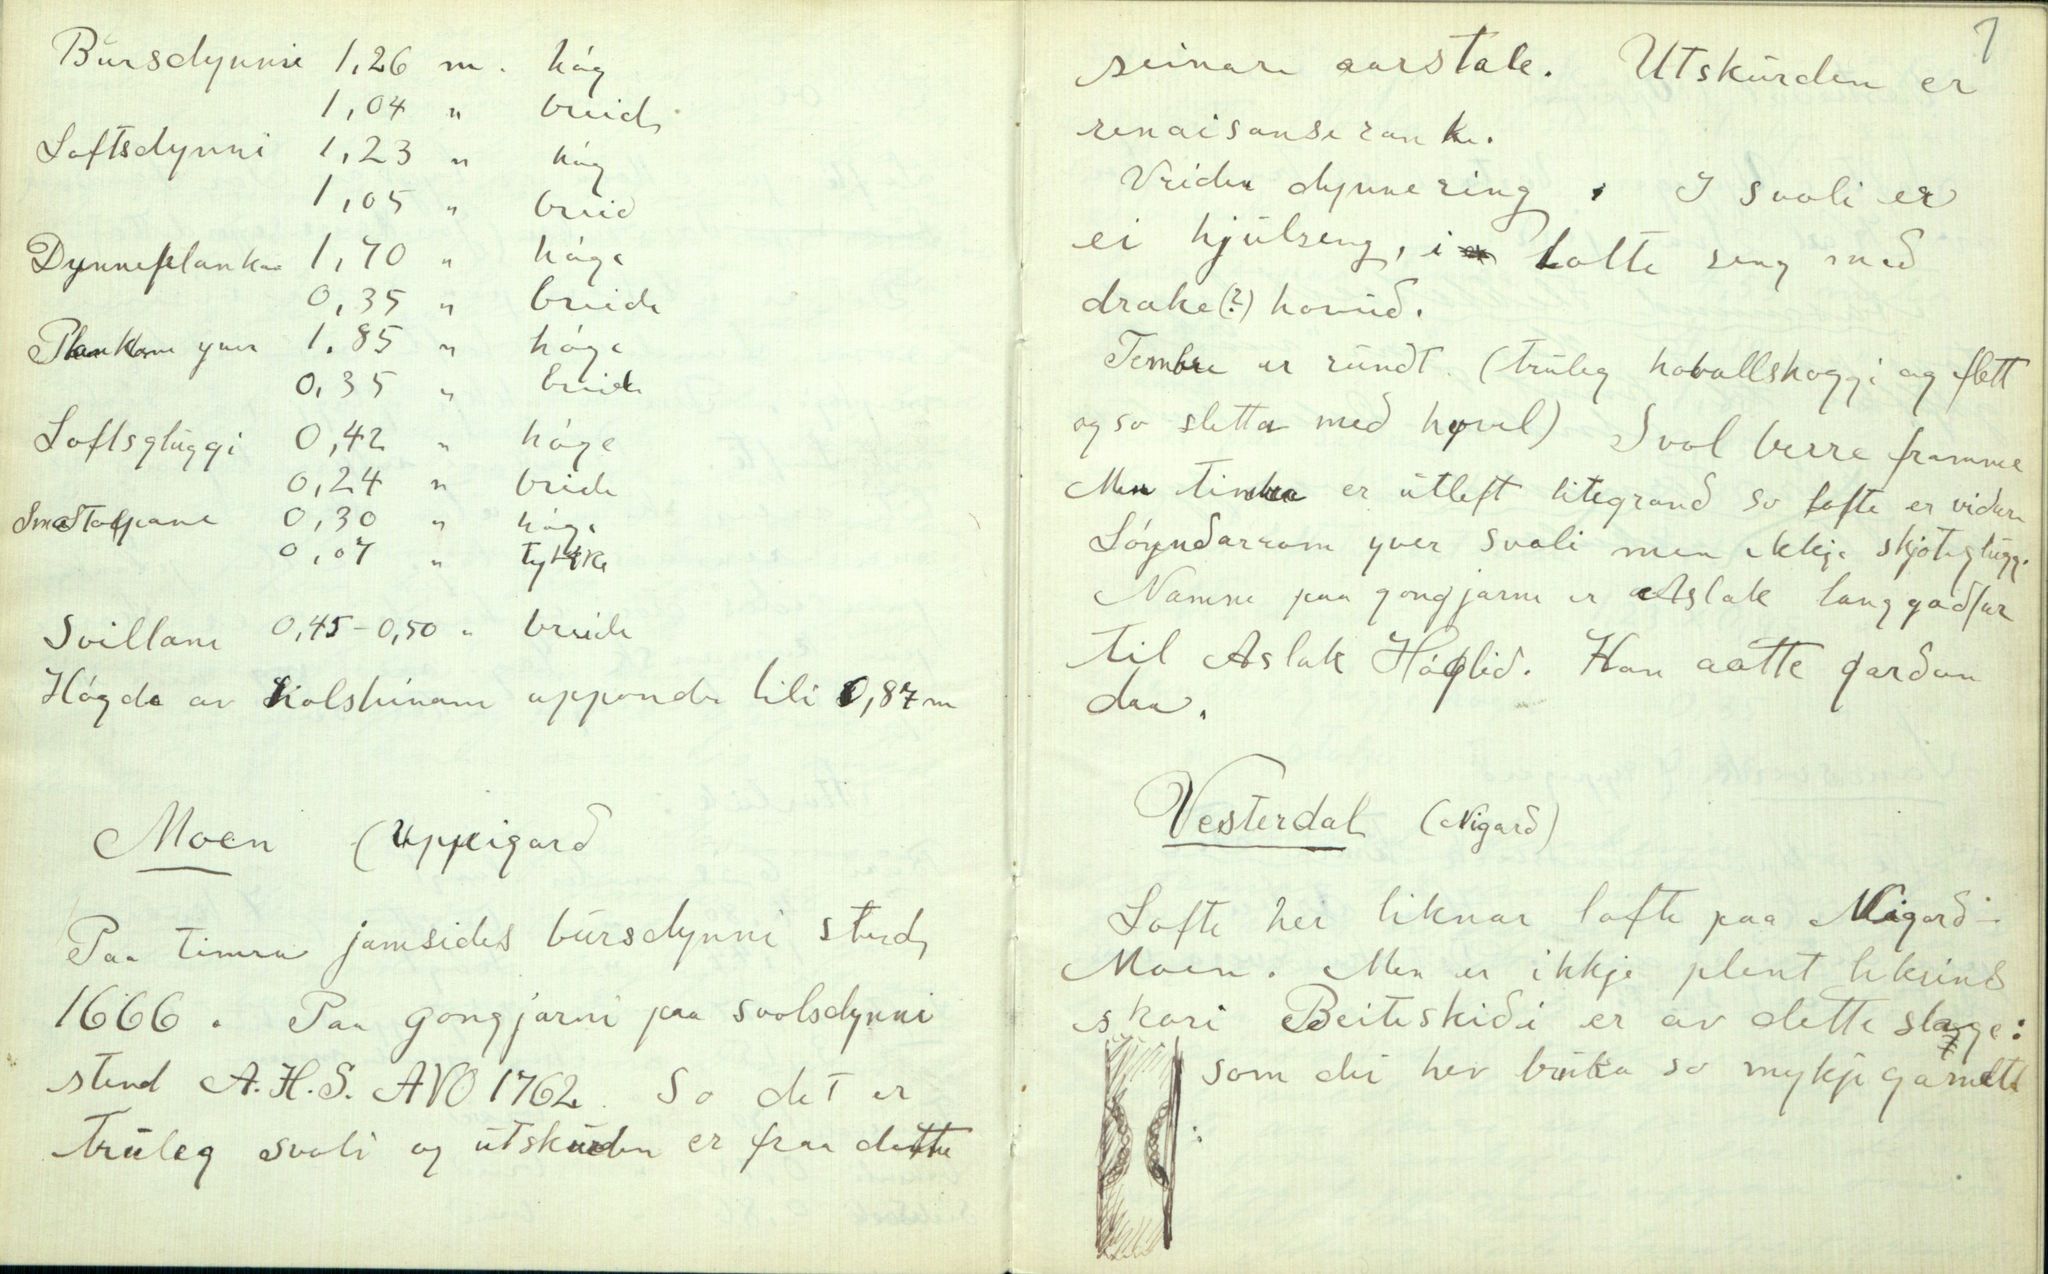 Bursdynni 1,26 m. håg
1,04 " breid
Loftsdynni 1,23 " håg
1,05 " breid
Dynneplankar 1,70 " håge
0,35 " breide
Plankane yver 1.85 " håge
0,35 " breide
Loftsgluggi 0,42 " håge
0,24 " breide
Smaastolpane 0,30 " håge
0,07 " tykke
Svillane 0,45-0,50 " breide
Högde av uppunde lili 0,87 m
Moen (Uppigard
Paa timra jamsides bursdynni stend
1666. Paa gongjarni paa svolsdynni
stend A.H.S. ANO 1762. So det er
truleg svoli og utskurden er fraa dette
7
seinare aarstale. Utskurden er
renaisanseranke.
Vriden dynnering. I svoli er
ei hjulseng, i Lofte seng med
drake(?) hovud.
Tembre er rundt. (truleg hovollshoggi og flett
og so sletta med hyvel) Svol berre framme
Men timbra er utleft litegrand so lofte er vidare
Löyndarrom yver svoli men ikkje skjoteglugg.
Namne paa gongjarne er Aslak langgodfar
til Aslak Höglid. Han aatte garden
daa.
Vesterdal (Nigard)
Lofte her liknar lofte paa Nigard-
Moen. Men er ikkje plent likeins
skori Beiteskidi er av dette slage:
som dei hev bruka so mykje gamelt
: